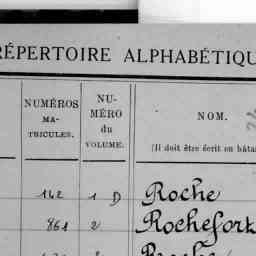 RÉPERTOIRE ALPHABÉTIQU
NUMÉROS
MA-
TRICULES.
NU-
MÉRO
du
VOLUME.
NOM.
(Il doit être écrit en bâta
142 1 D Roche
861 2 Rochefort